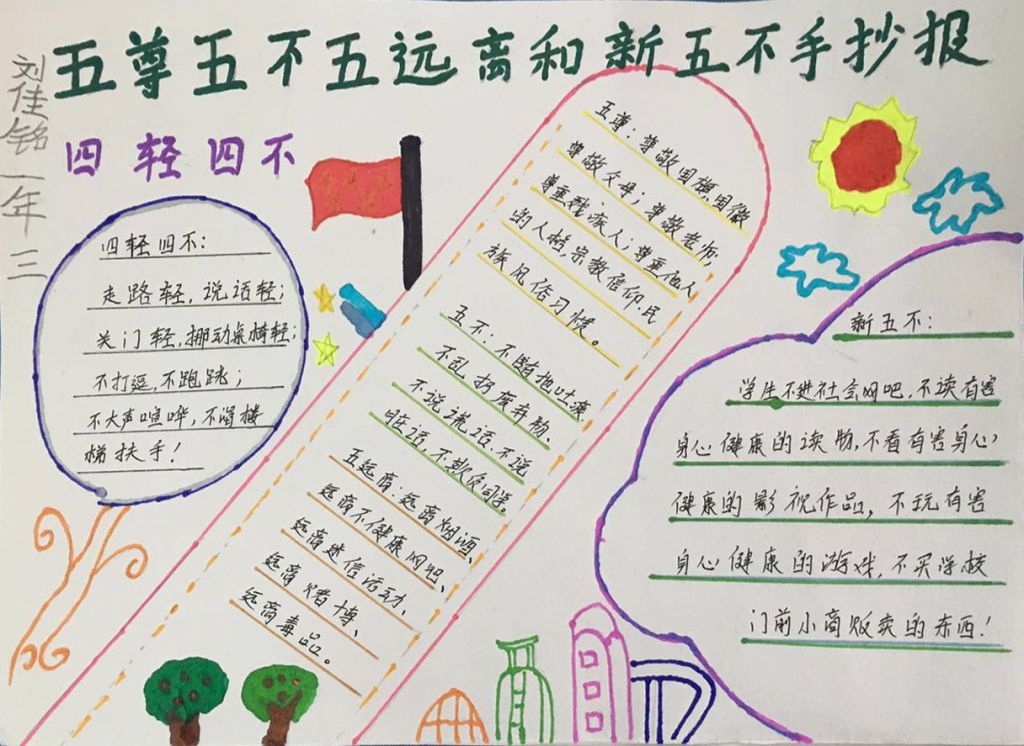 五尊五不五远离和新五不手抄报
刘佳铭一年三
四轻四不
四轻四不:
走路轻,说话轻;
关门轻,挪动桌椅轻;
不打逗,不跑跳;
不大声喧哗,不滑楼
梯扶手!
五尊:尊敬国旗国徽
尊敬父母;尊敬老师;
尊重残疾人;尊重他人
的人格.宗教信仰.民
族风俗习惯。
五不:不随地吐痰.
不乱扔废弃物.
不说谎话.不说
脏话,不欺负同学,
五远离:远离烟酒、
远离不健康网吧、
远离迷信活动、
远离赌博、
远离毒品。
新五不:
学生不进社会网吧,不读有害
身心健康的读物,不看有害身心
健康的影视作品,不玩有害
身心健康的游戏,不买学校
门前小商贩卖的东西!